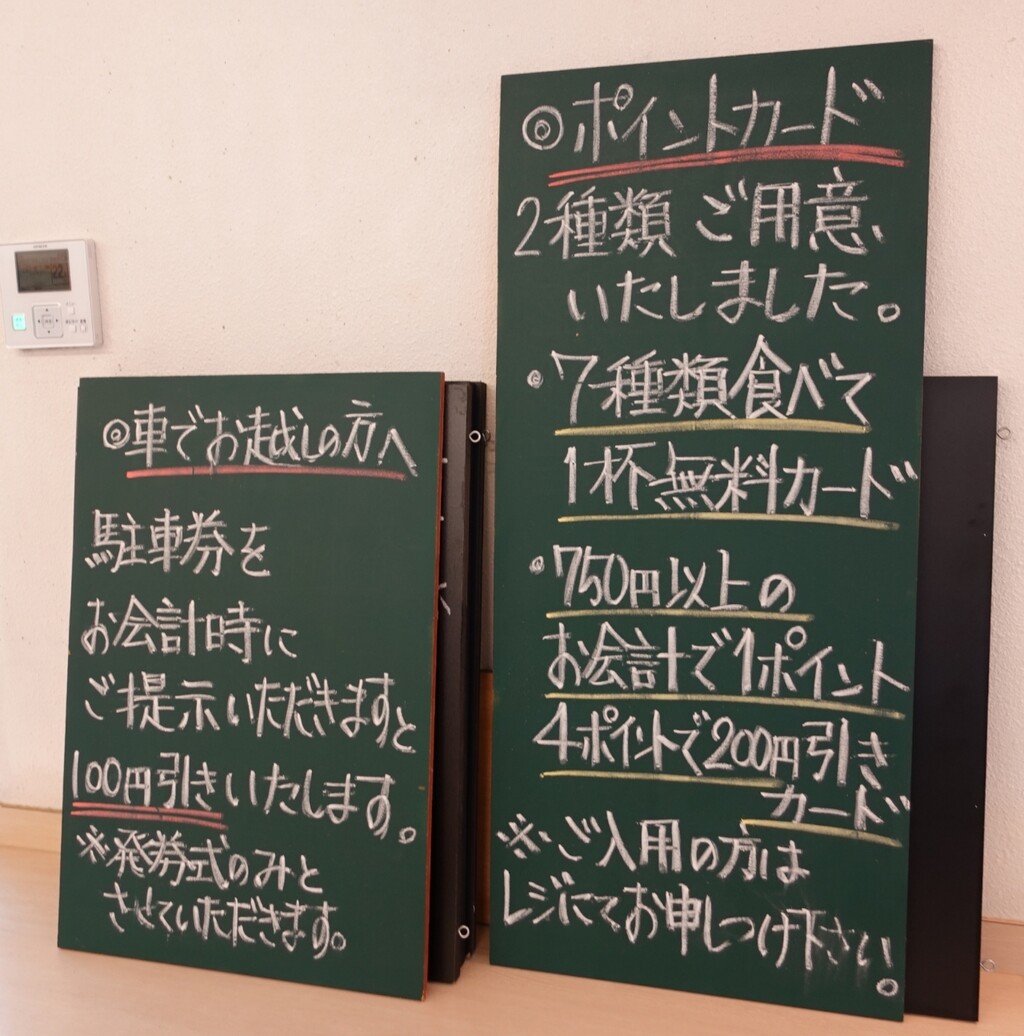 ◎車でお越しの方へ
駐車券を
お会計時に
ご提示いただきますと
100円引きいたします。
※発券式のみと
させていただきます。
◎ポイントカード
2種類ご用意
いたしました。
・7種類食べて
1杯無料カード
・750円以上の
お会計で1ポイント
4ポイントで200円引き
カード
※ご入用の方は
レジにてお申しつけ下さい。